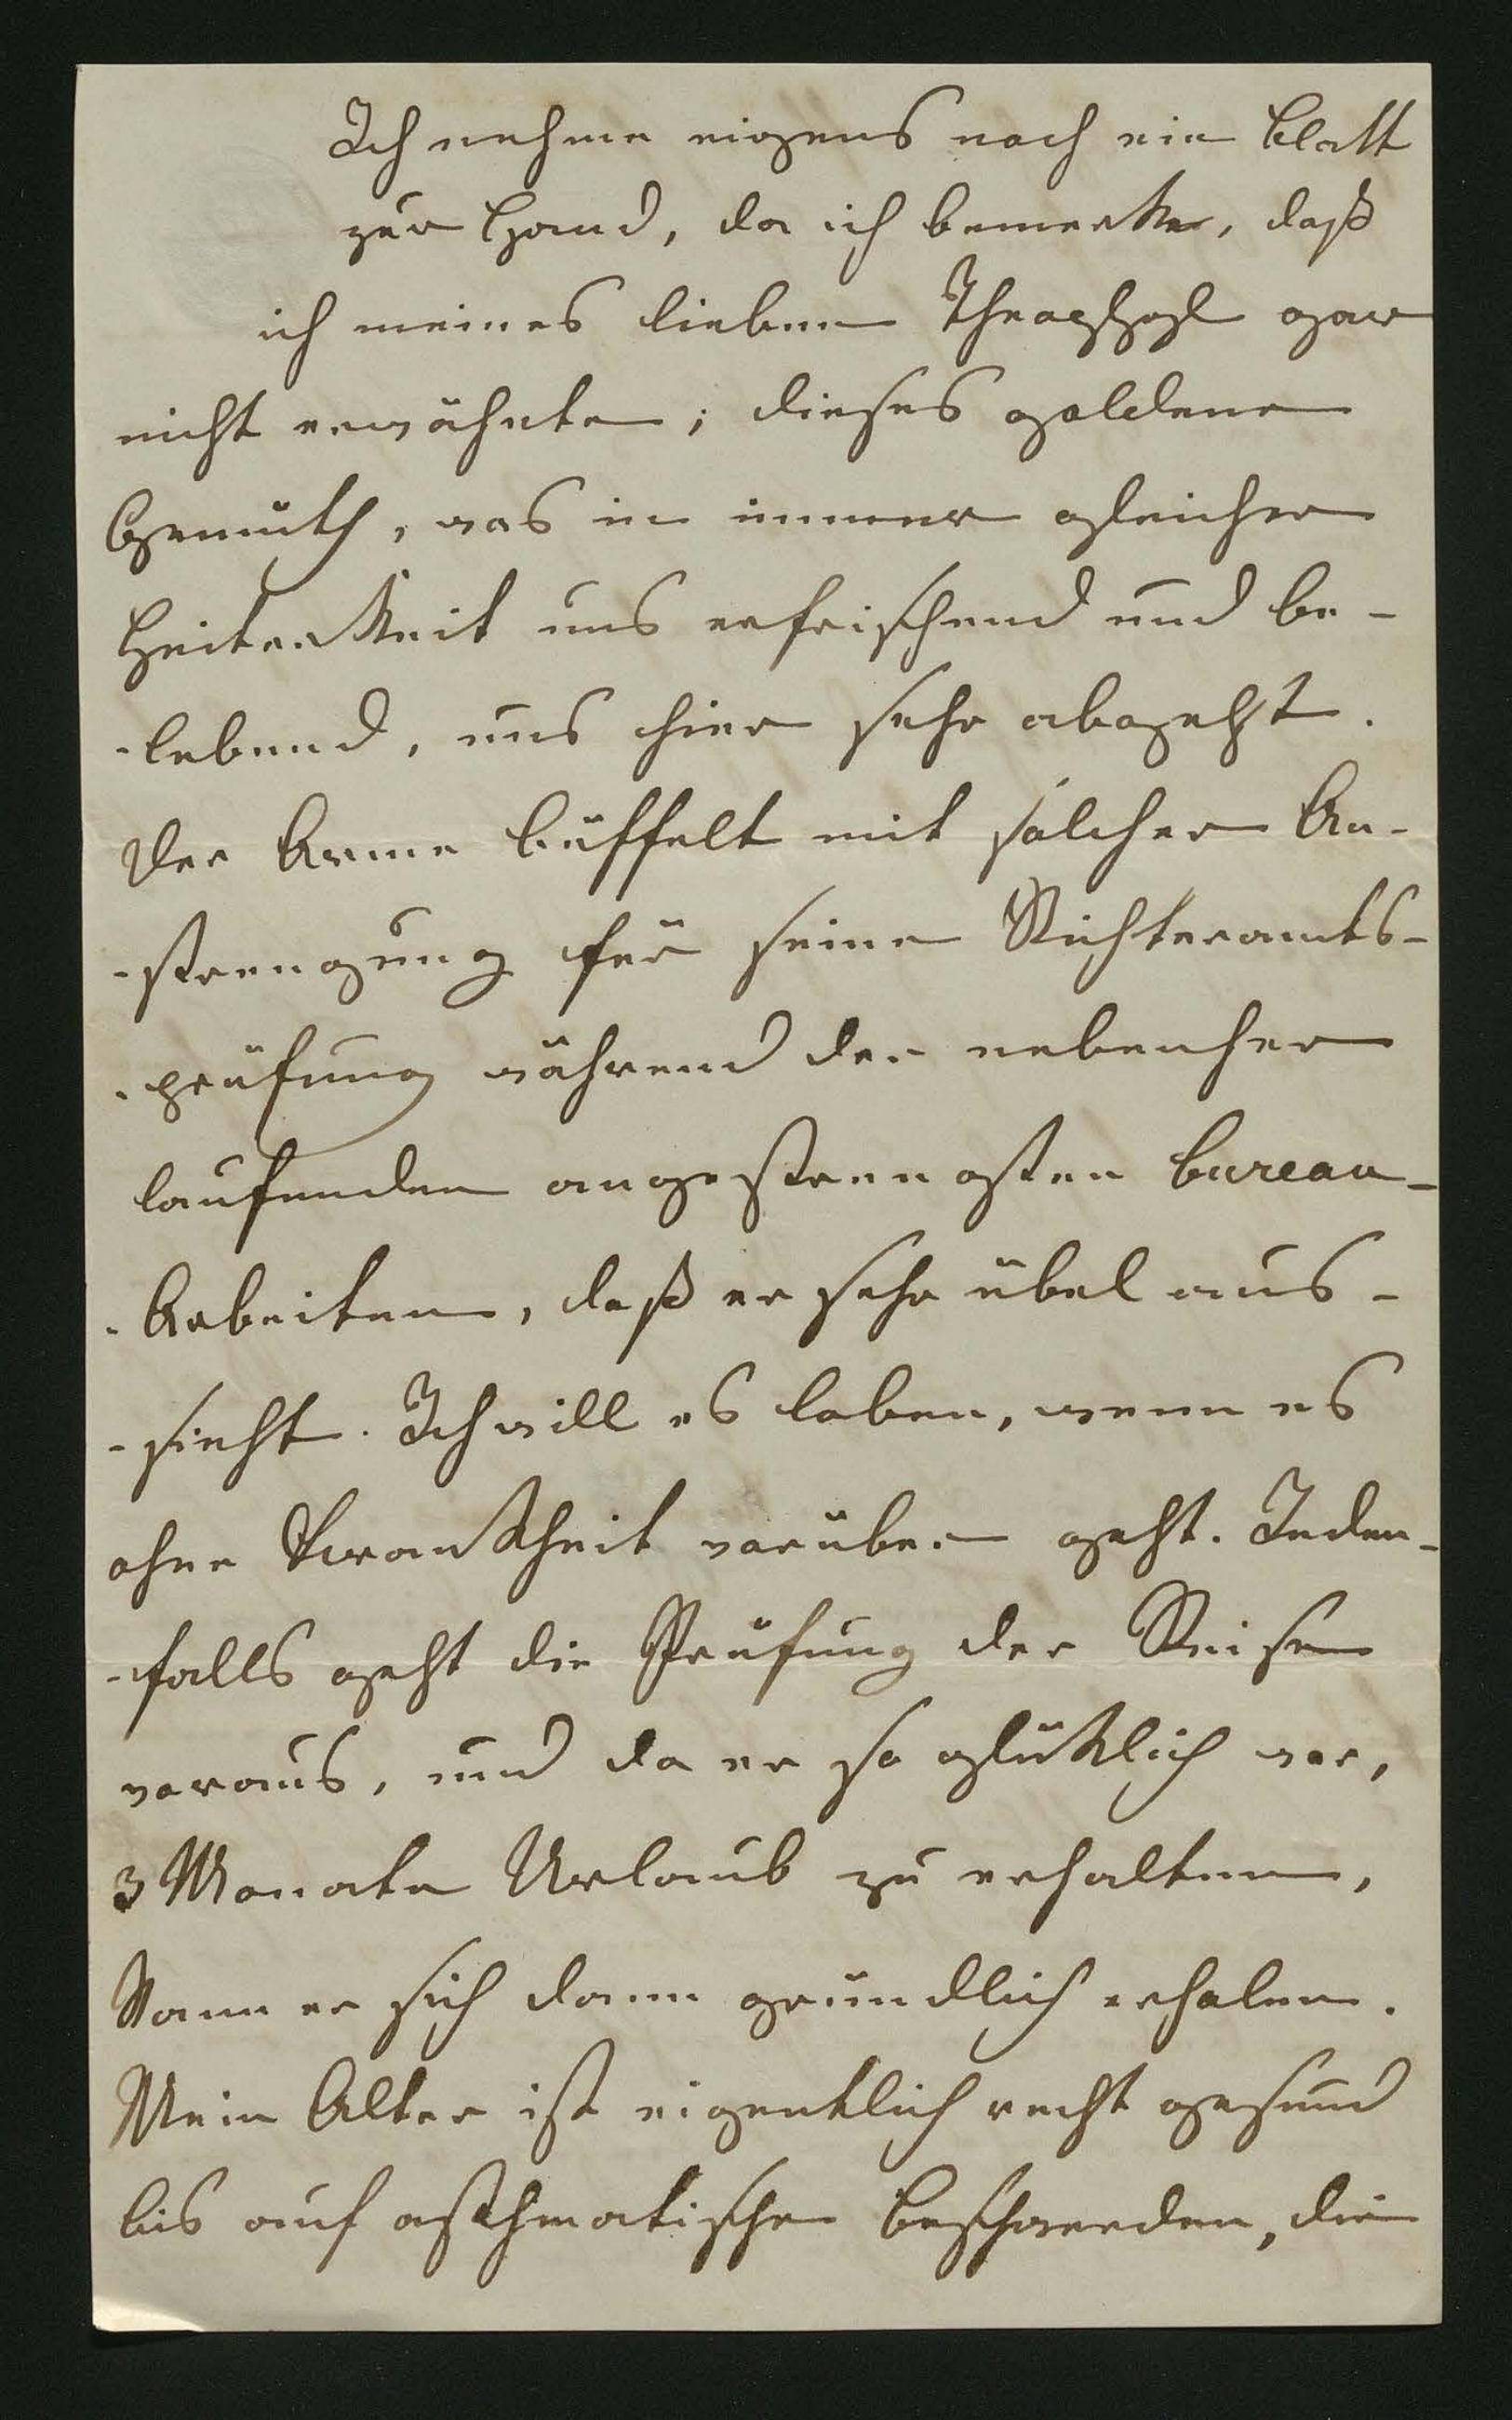 Ich nehme eigens noch ein Blatt
zur Hand, da ich bemerke, daß
ich meines lieben gar
nicht erwähnte; dieses goldene
Gemüth, was in immer gleicher
Heiterkeit uns erfrischend und be-
-lebend, uns hier sehr abgeht.
Der Arme büffelt mit solcher An-
-strengung für seine Richteramts-
-prüfung während der nebenher
laufenden angestrengsten Bureau-
-Arbeiten, daß er sehr übel aus-
-sieht. Ich will es loben, wenn es
ohne Krankheit vorüber geht. Jeden-
-falls geht die Prüfung der Reise
voraus, und da er so glücklich war,
3 Monate Urlaub zu erhalten,
kann er sich dann gründlich erholen.
Mein Alter ist eigentlich recht gesund
bis auf asthmatische Beschwerden, die